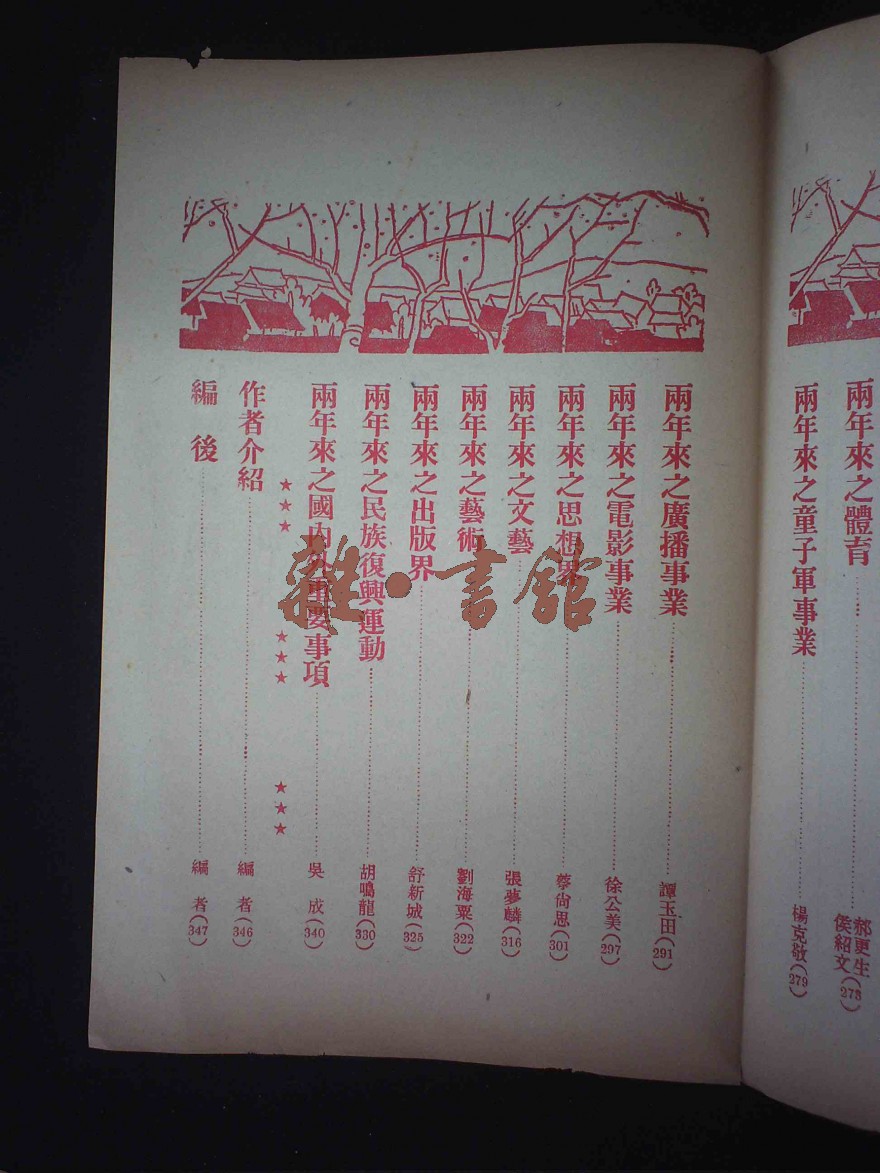 兩年來之體育……郝更生 侯紹文(273)
兩年來之童子軍事業……楊克敬(279)
兩年來之廣播事業……譚玉田(291)
兩年來之電影事業……徐公美(297)
兩年來之思想界……蔡尙思(301)
兩年來之文藝……張夢麟(316)
兩年來之藝術……劉海粟(322)
兩年來之出版界……舒新城(325)
兩年來之民族復興運動……胡鳴龍(330)
兩年來之國內外重要事項……吳成(340)
★★★ ★★★ ★★★
作者介紹……編者(346)
編後……編者(347)
雜·書館